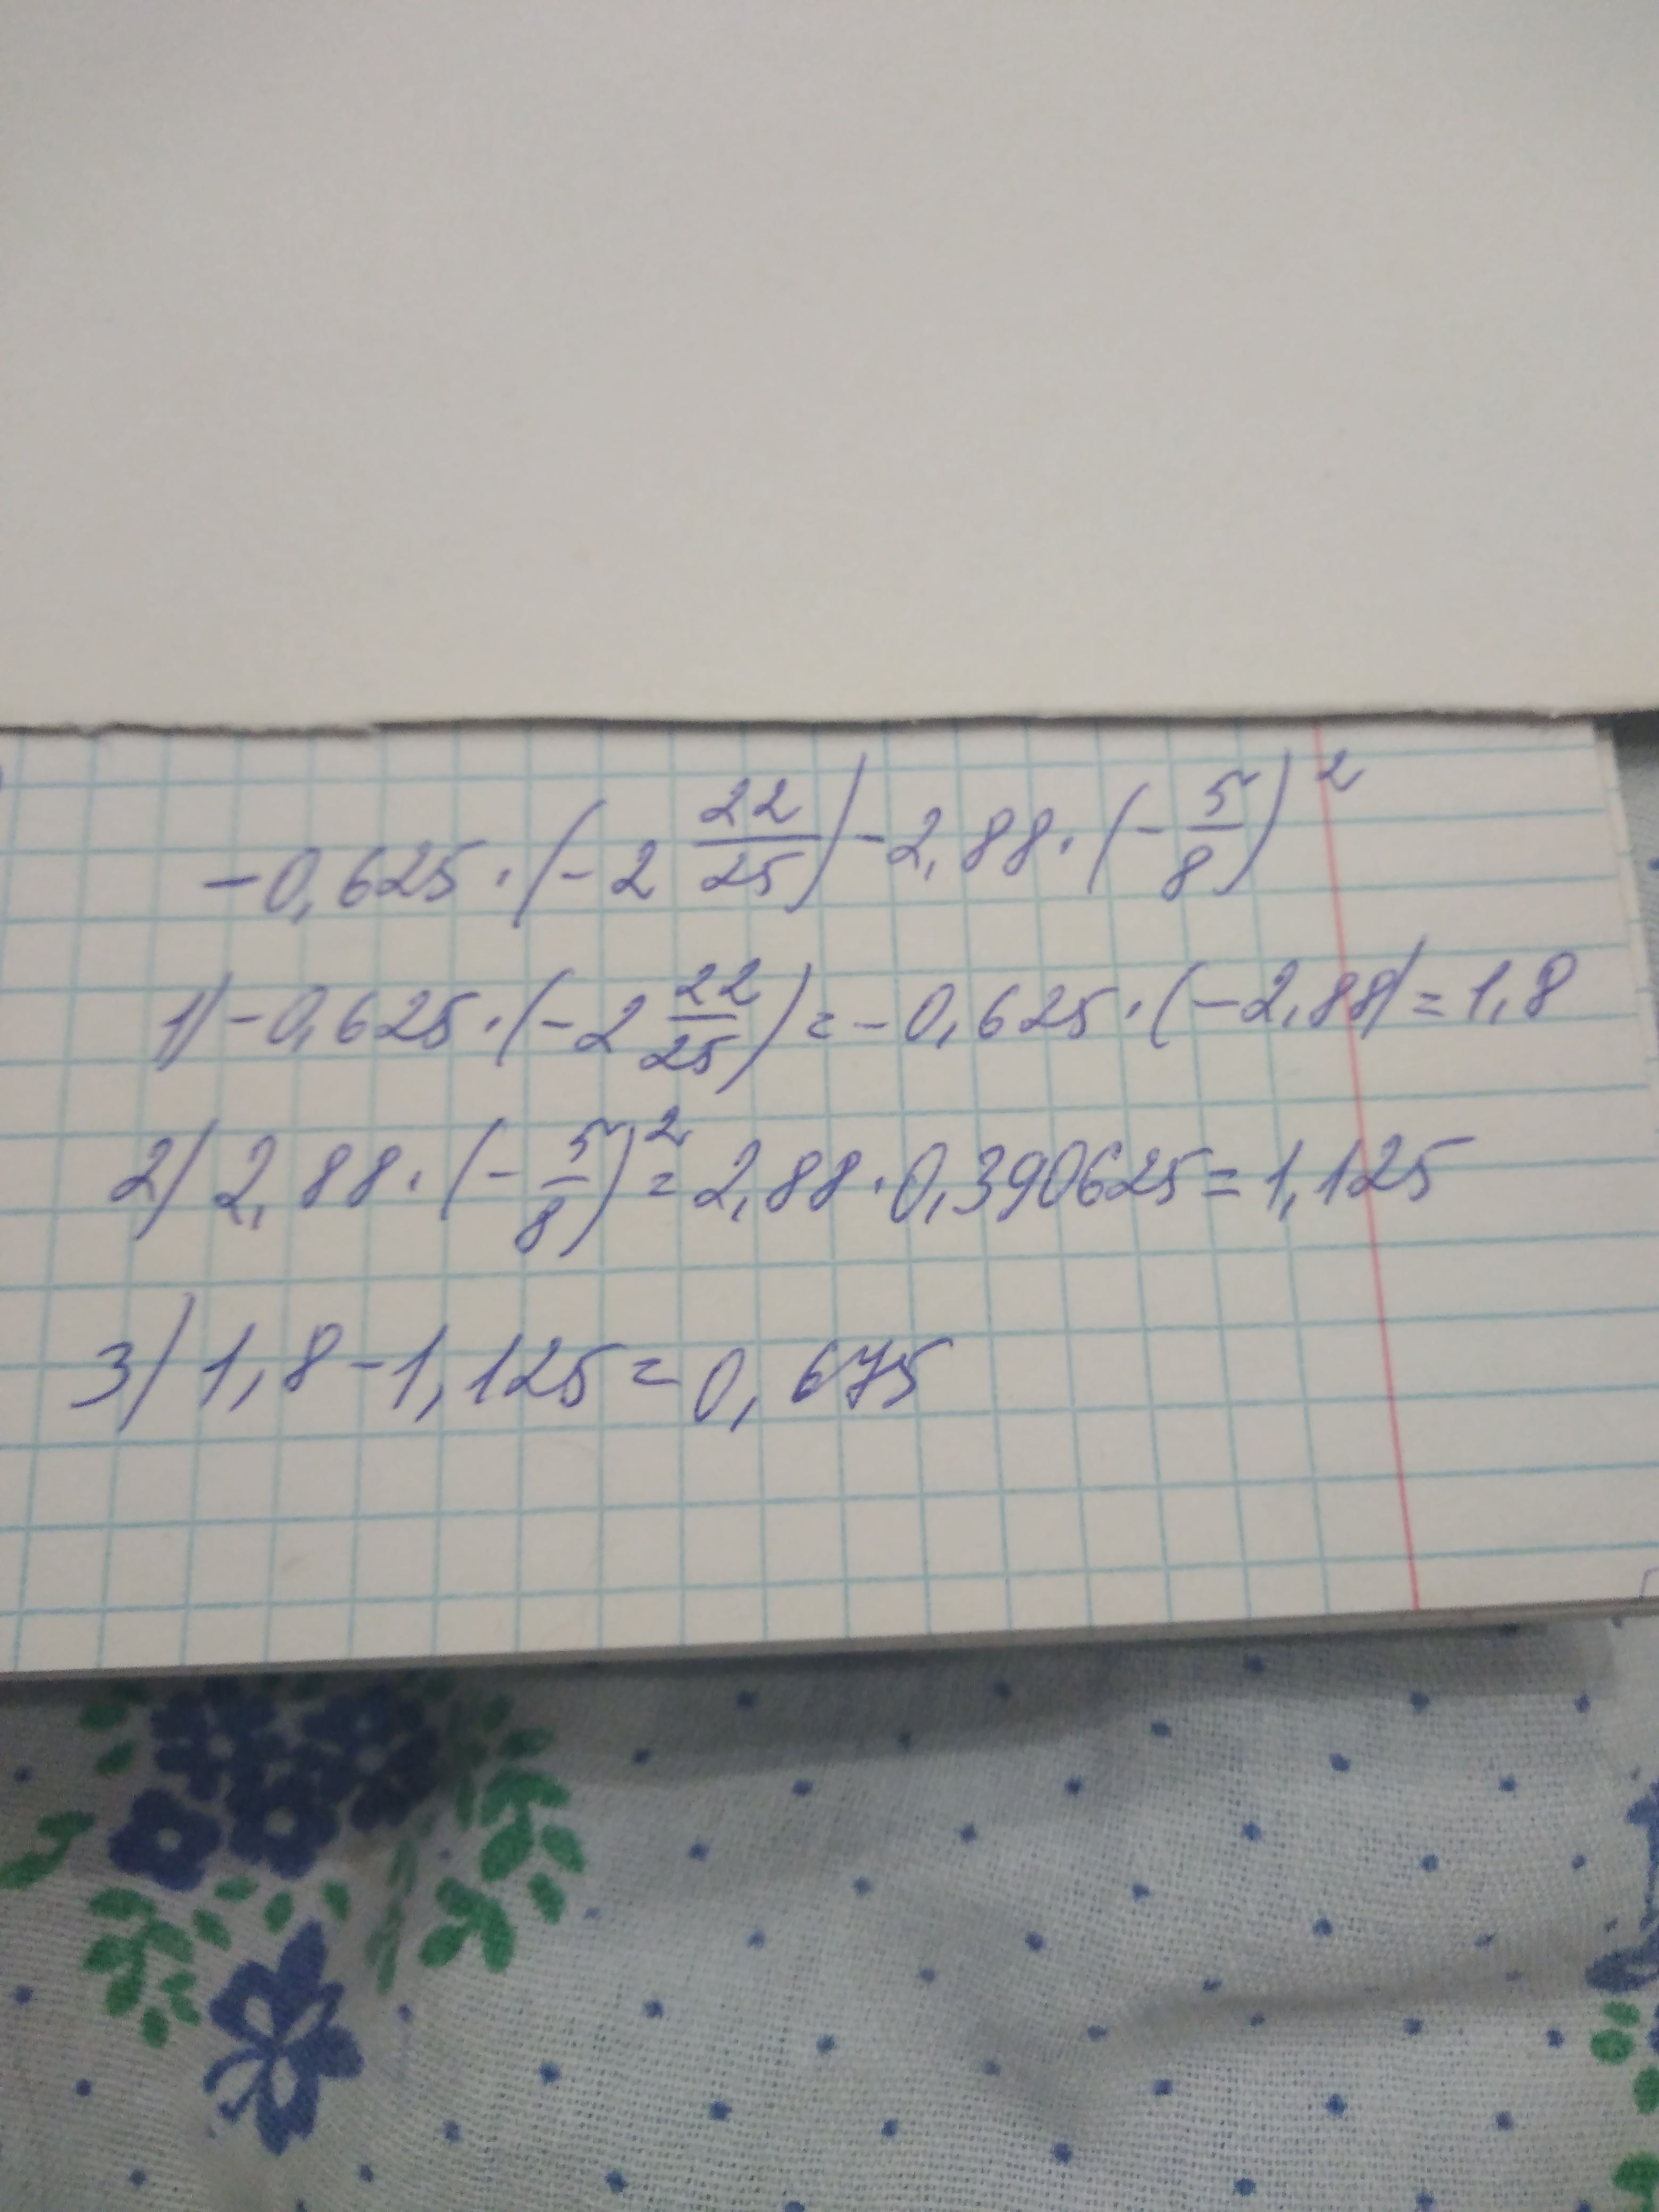 -0,625·(-2 22/25)-2,88·(-5/8)²
1)-0,625·(-2 22/25)=-0,625·(-2,88)=1,8
2) 2,88·(-5/8)²=2,88·0,390625=1,125
3) 1,8-1,125=0,675